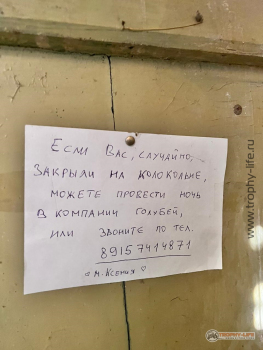 Если Вас, случайно,
закрыли на колокольне,
можете провести ночь
в компании голубей,
или звоните по тел.
89157414871
м. Ксения
www.trophy-life.ru